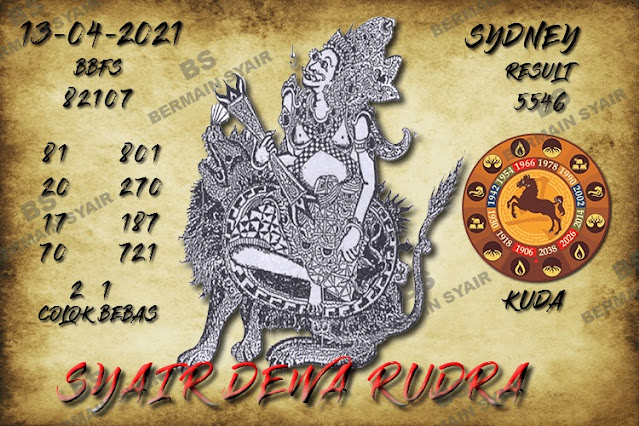 13-04-2021
BBFS
82107
81 801
20 270
17 187
70 721
2 1
COLOK BEBAS
SYDNEY
RESULT
5546
1942 1954 1966 1978 1990 2002 2014 2026 2038 1906 1918 1930
KUDA
SYAIR DEWA RUDRA
BS
BERMAIN SYAIR
BS
BERMAIN SYAIR
BS
BERMAIN SYAIR
BERMAIN SYAIR
BERMAIN SYAIR
BERMAIN SYAIR